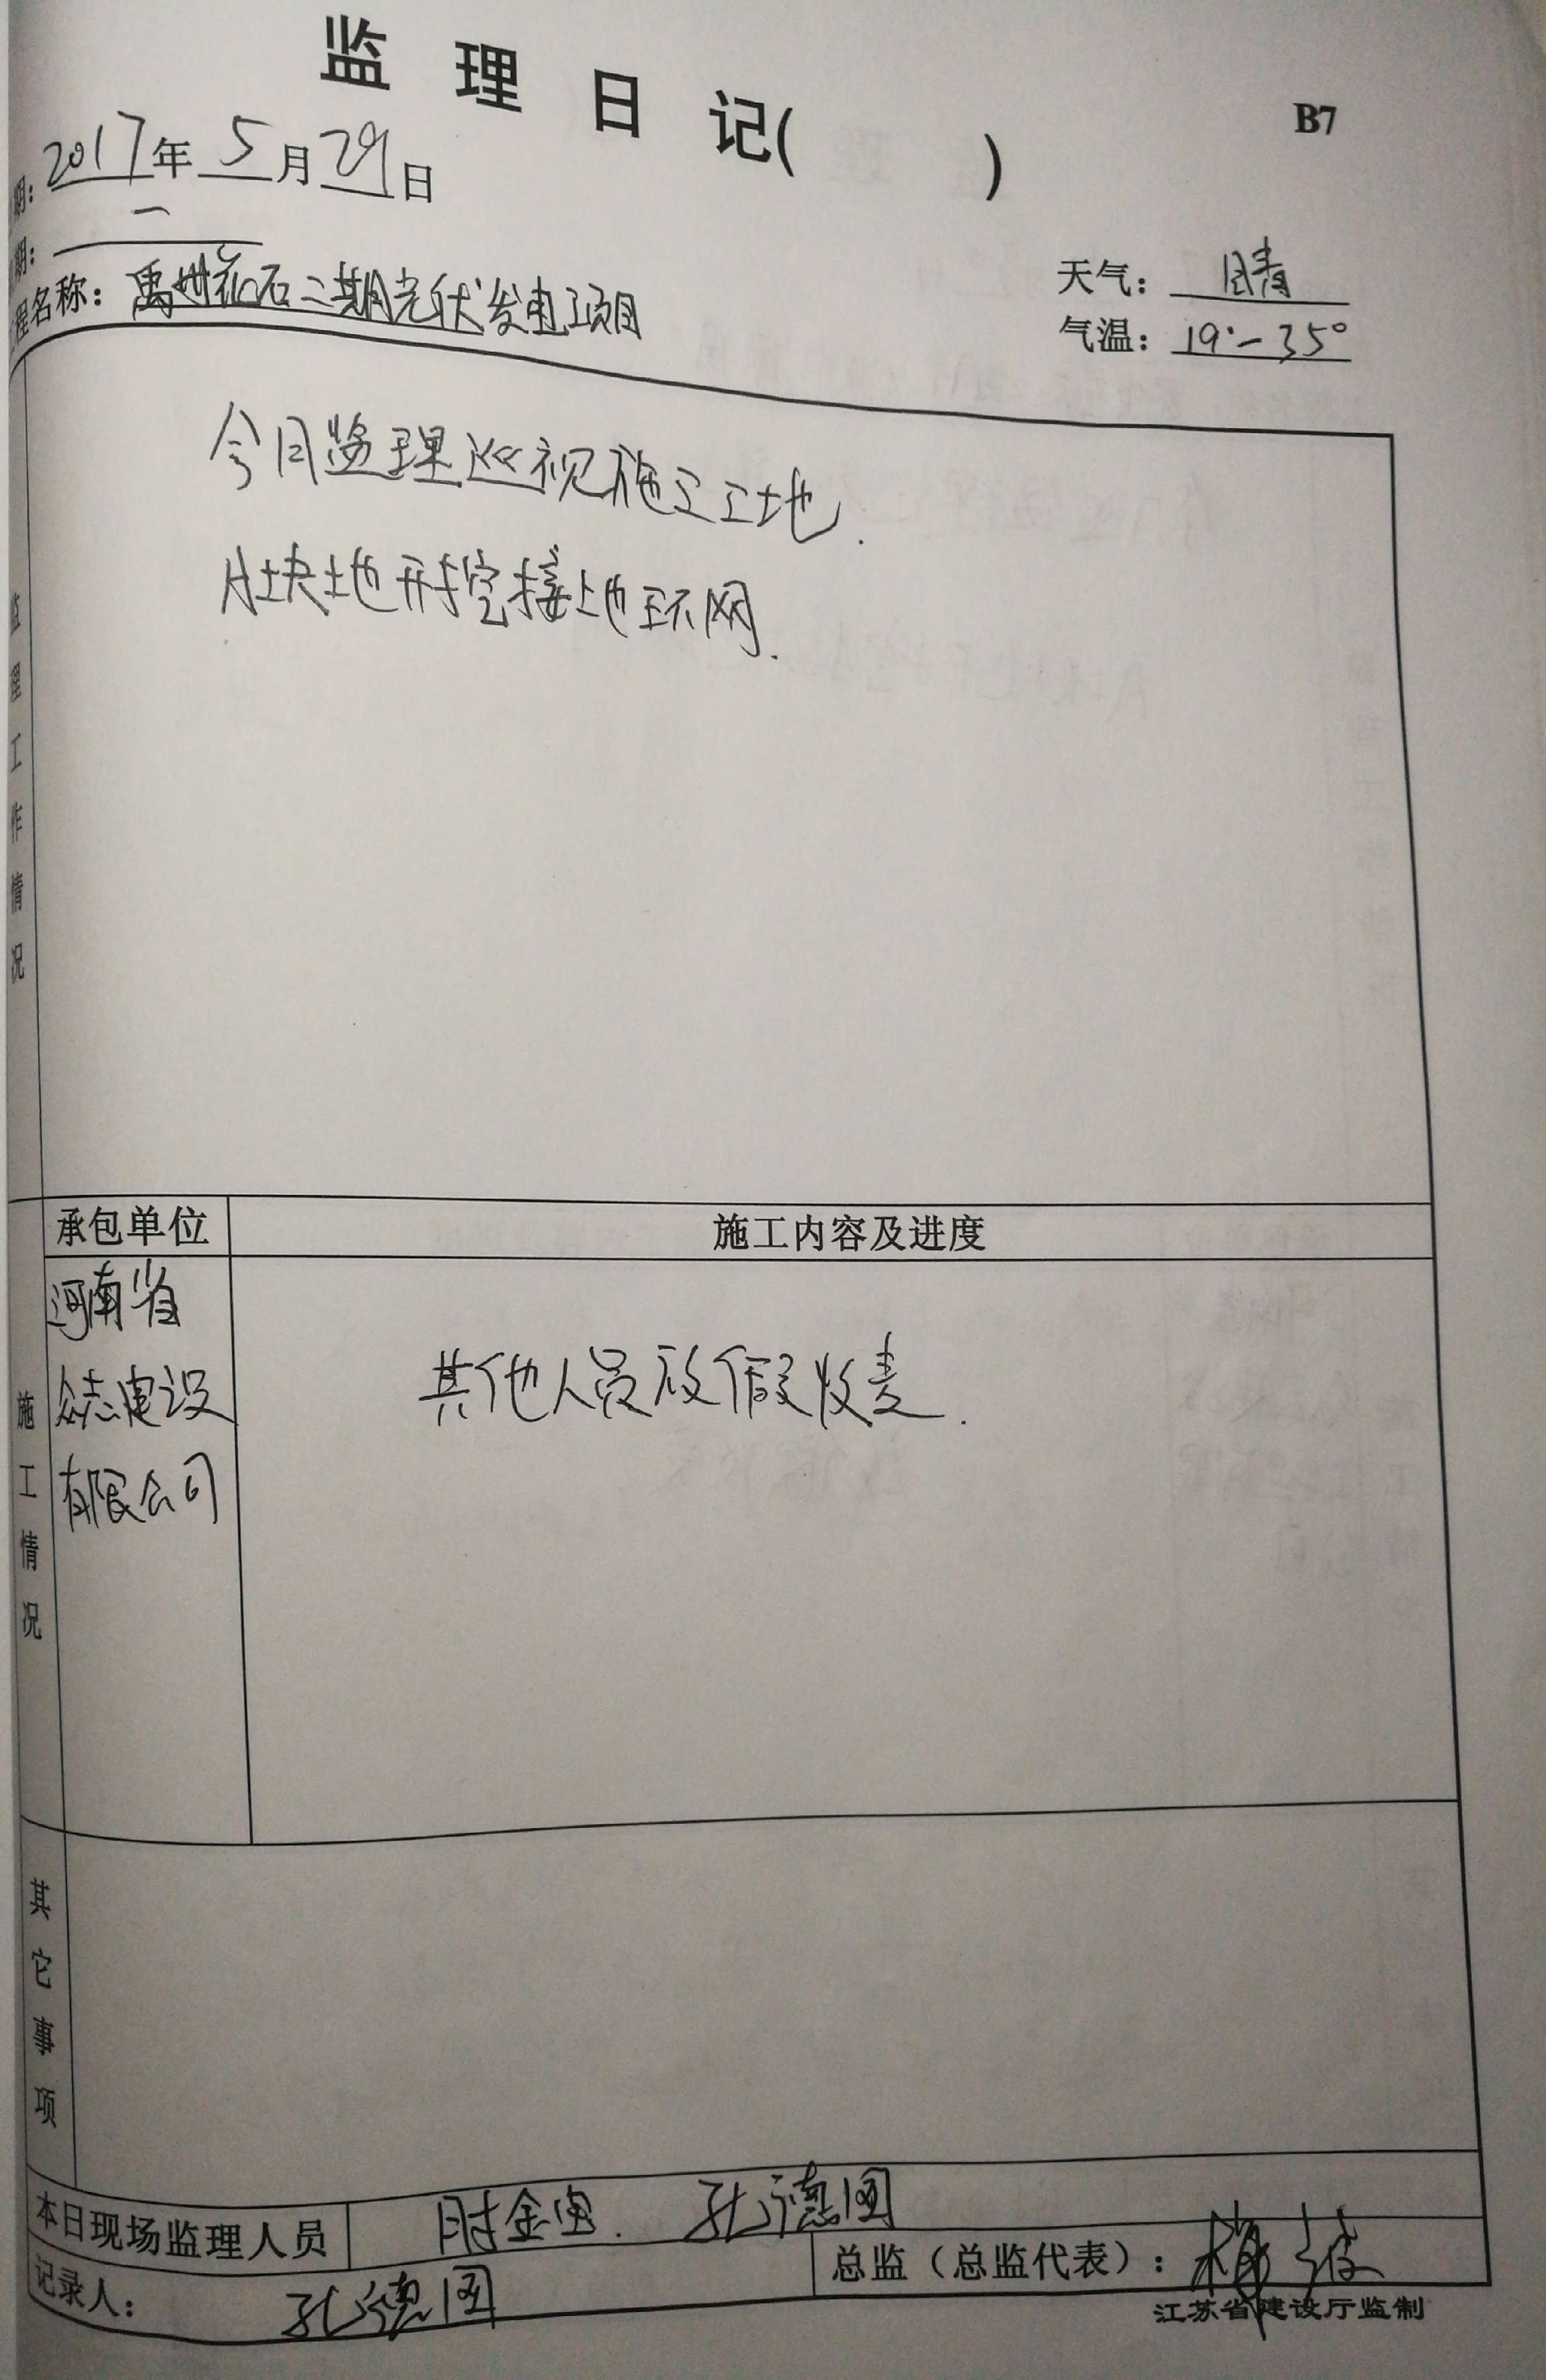 监理日记( )
B7
期: 2017年5月29日
期: 一
程名称: 禹州花石二期光伏发电项目
天气: 晴
气温: 19°-35°
今日监理巡视施工工地.
A块地开挖接地环网.
监理工作情况
承包单位
施工内容及进度
河南省
众志建设
有限公司
其他人员放假收麦.
施工情况
其它事项
本日现场监理人员
孔德国
记录人: 孔德国
总监（总监代表）:
江苏省建设厅监制